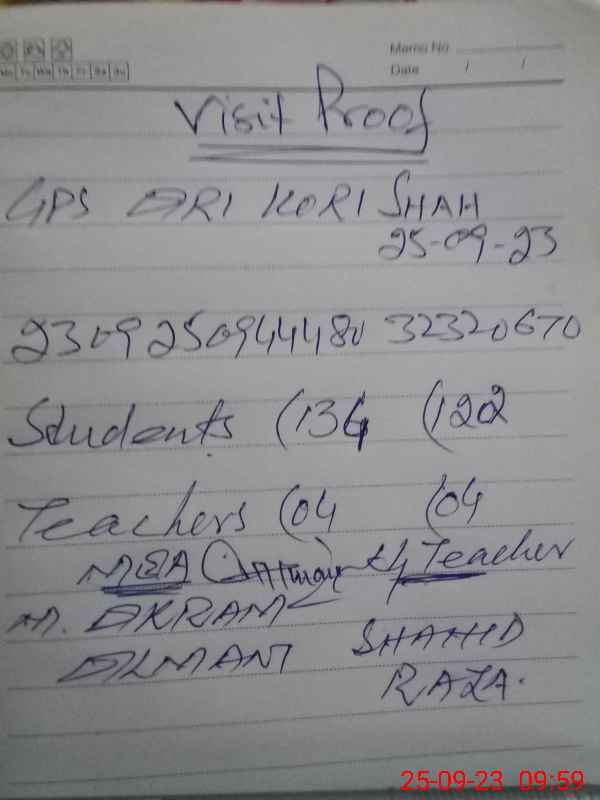 Memo No
Date / /
Mo Tu We Th Fr Sa Su
Visit Proof
GPS ARI KORI SHAH
25-09-23
230925094448032320670
Students (134 (122
Teachers (04 (04
MEA Teacher
M. AKRAM SHAHID
ALMANI RAZA.
25-09-23 09:59